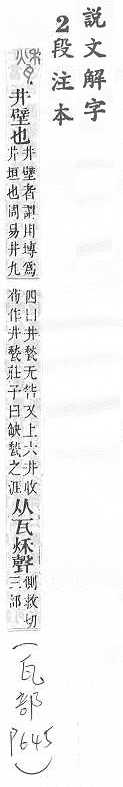 說文解字
2段注本
甃井壁也井壁者謂用塼爲井垣也周易井九四曰井甃无咎又上六井收荀作井甃莊子曰缺甃之涯从瓦秌聲側救切三部(瓦部P645)